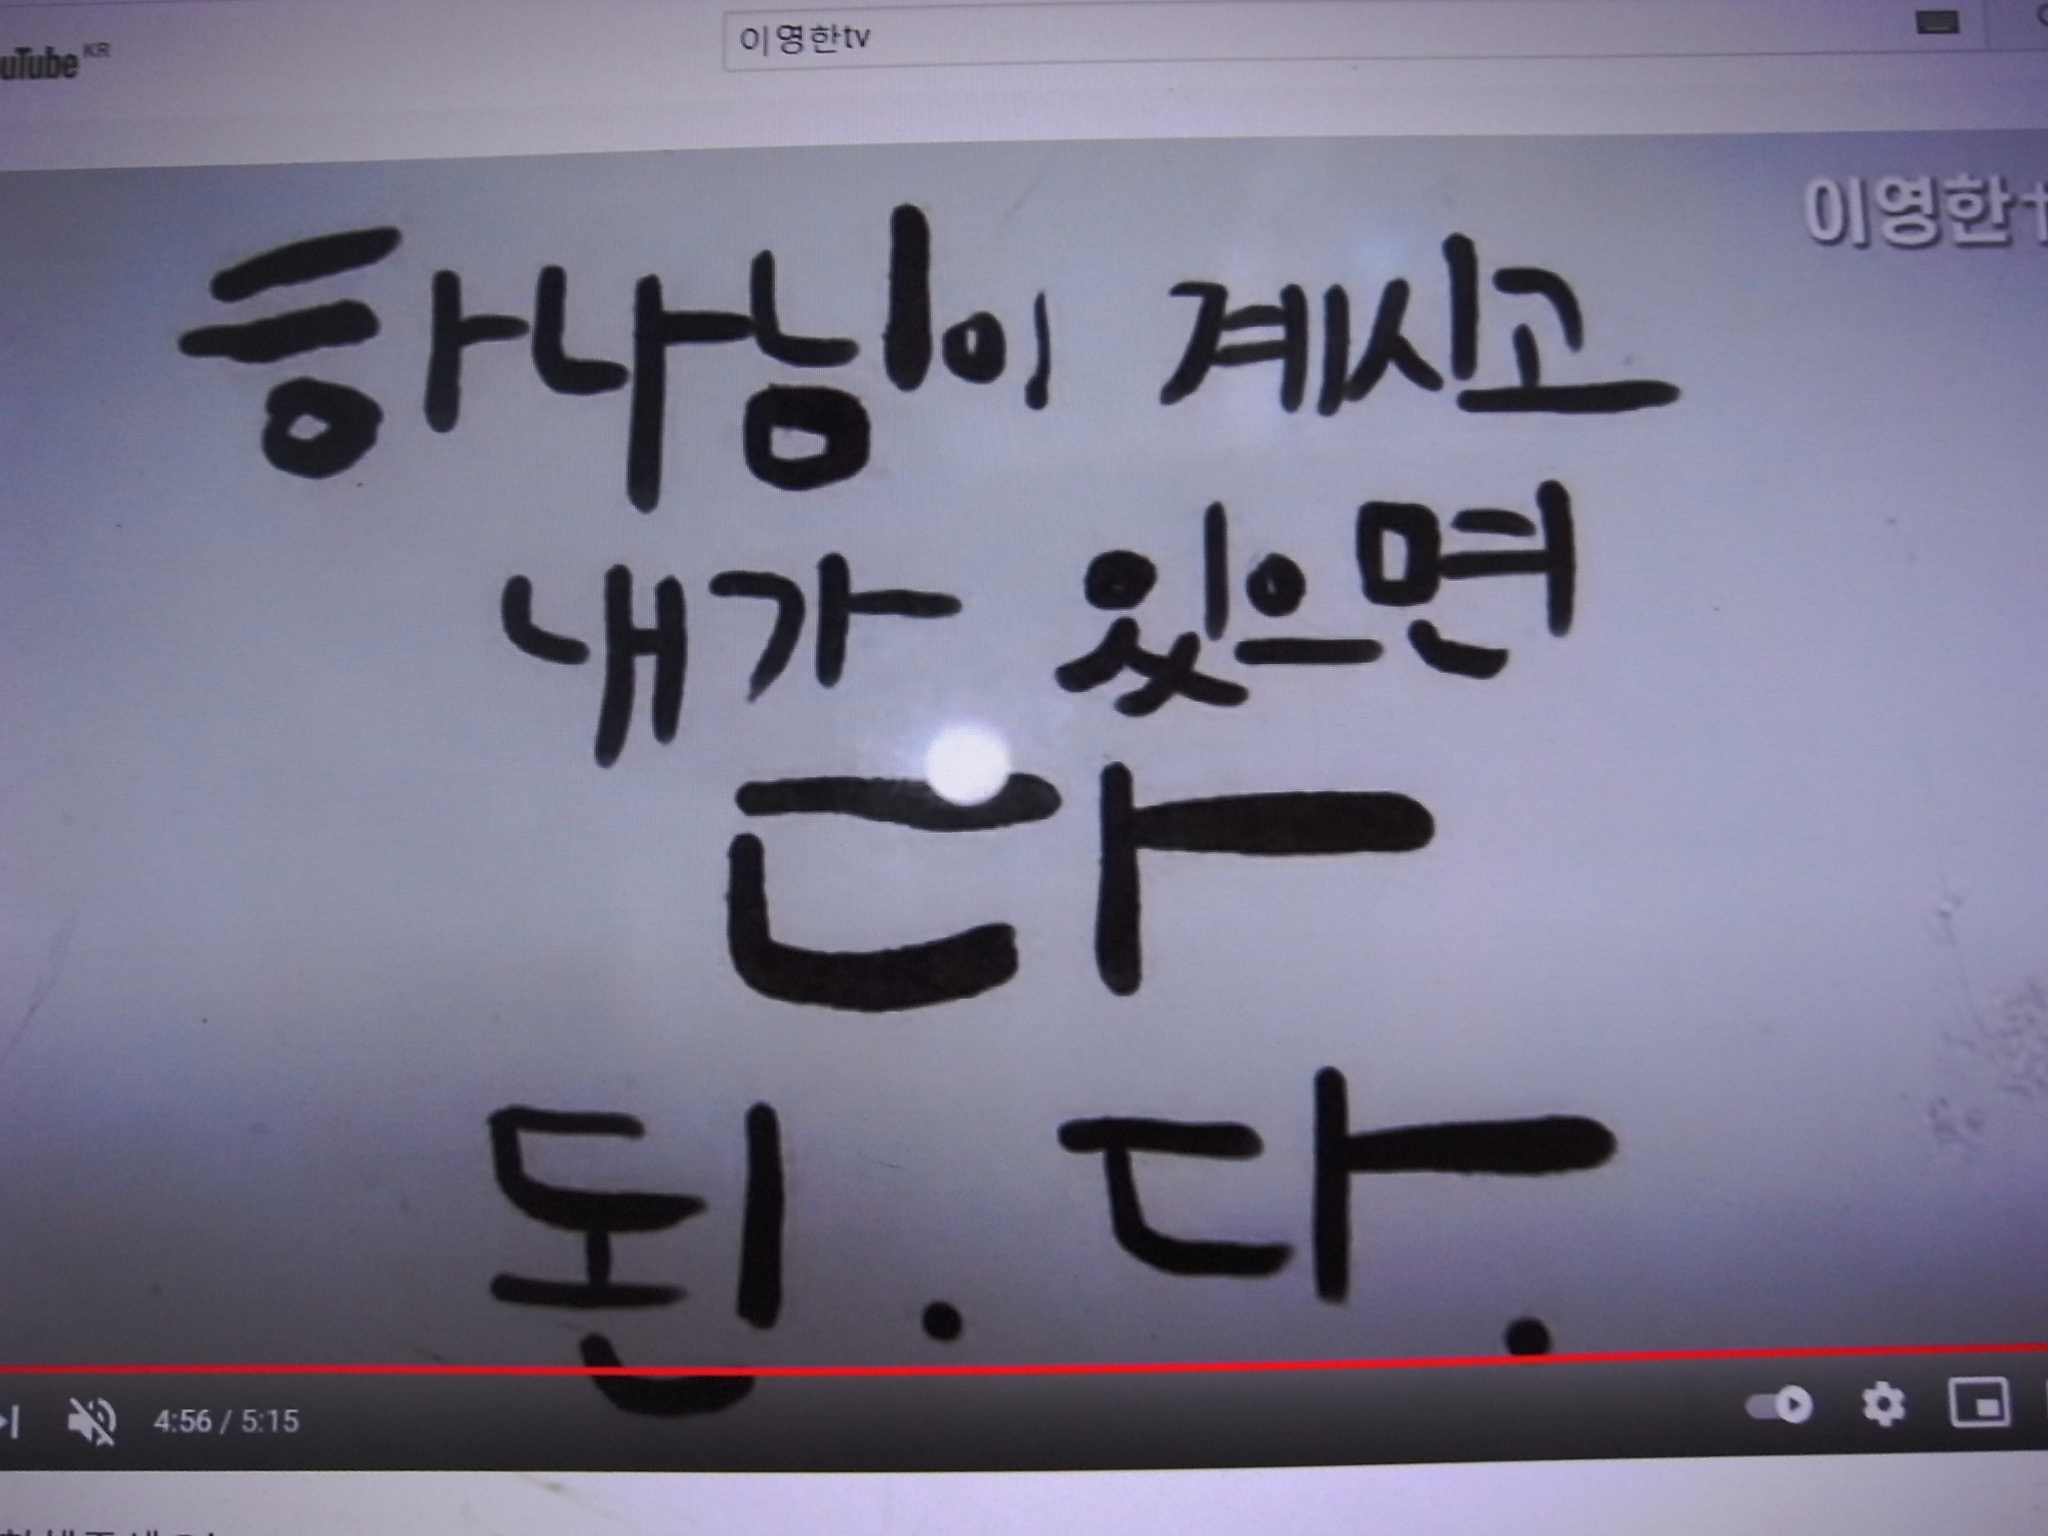 uTube KR
이영한tv
이영한t
하나님이 계시고
내가 있으면
다
된.다.
4:56 / 5:15